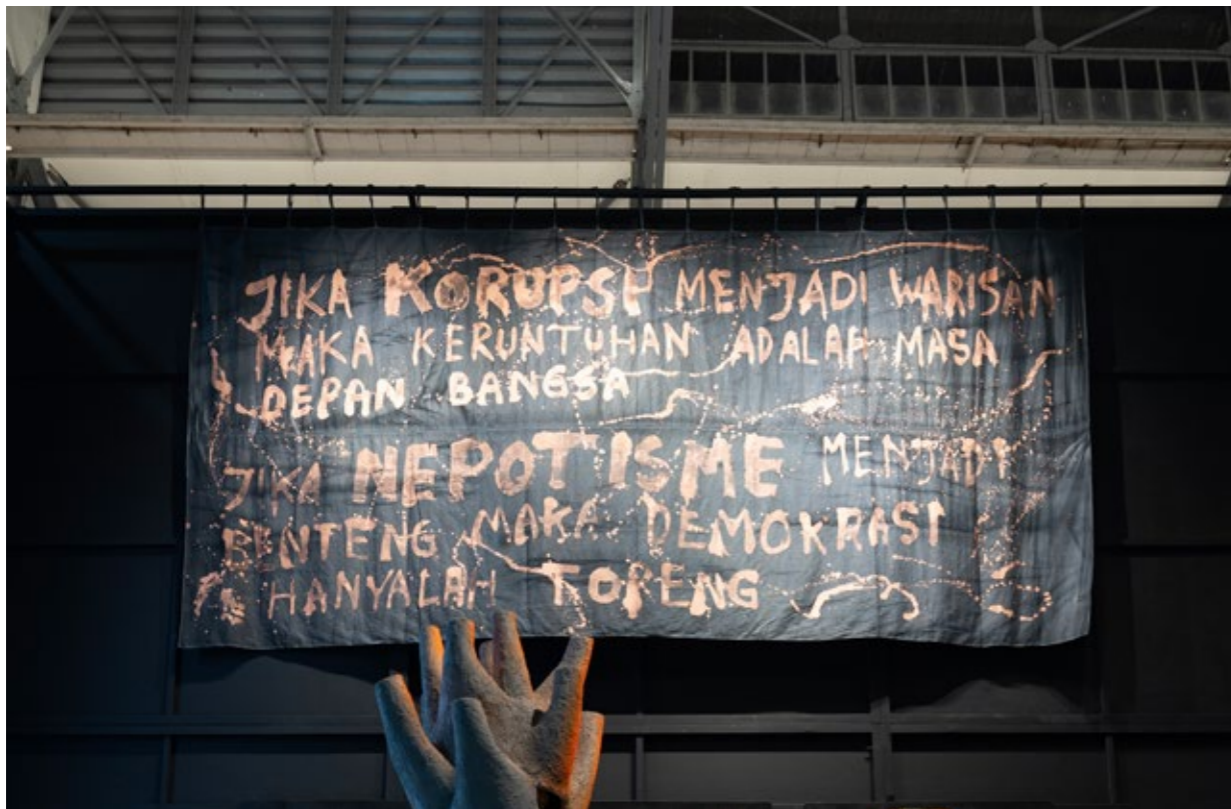 JIKA KORUPSI MENJADI WARISAN
MAKA KERUNTUHAN ADALAH MASA
DEPAN BANGSA
JIKA NEPOTISME MENJADI
BENTENG MAKA DEMOKRASI
HANYALAH TOPENG